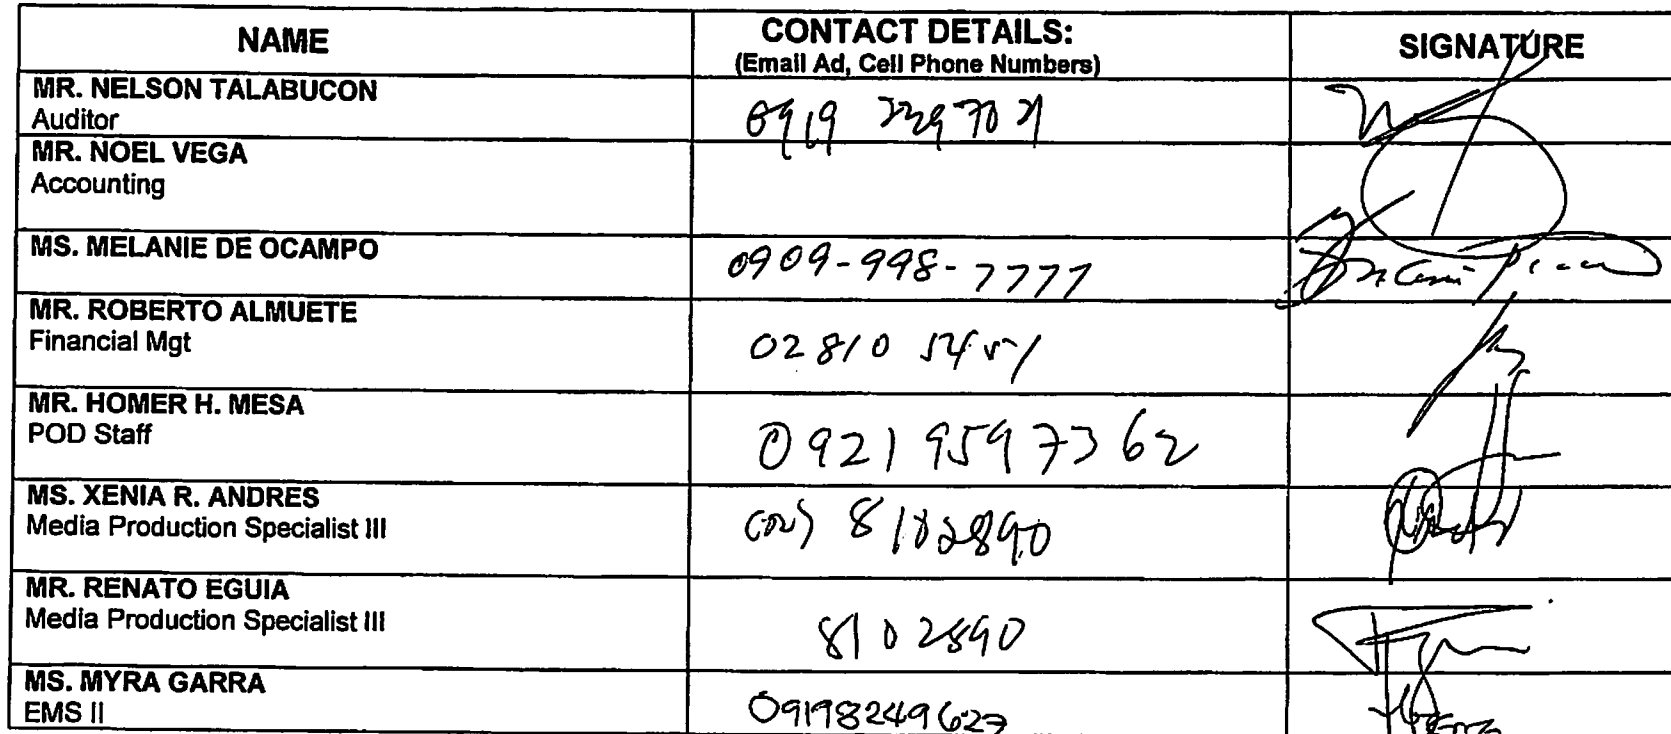 NAME
CONTACT DETAILS:
(Email Ad, Cell Phone Numbers)
SIGNATURE
MR. NELSON TALABUCON
Auditor
0919
MR. NOEL VEGA
Accounting
MS. MELANIE DE OCAMPO
0909-998-7777
MR. ROBERTO ALMUETE
Financial Mgt
02810 5451
MR. HOMER H. MESA
POD Staff
0921 9597362
MS. XENIA R. ANDRES
Media Production Specialist III
(02) 8102890
MR. RENATO EGUIA
Media Production Specialist III
8102890
MS. MYRA GARRA
EMS II
09198249627